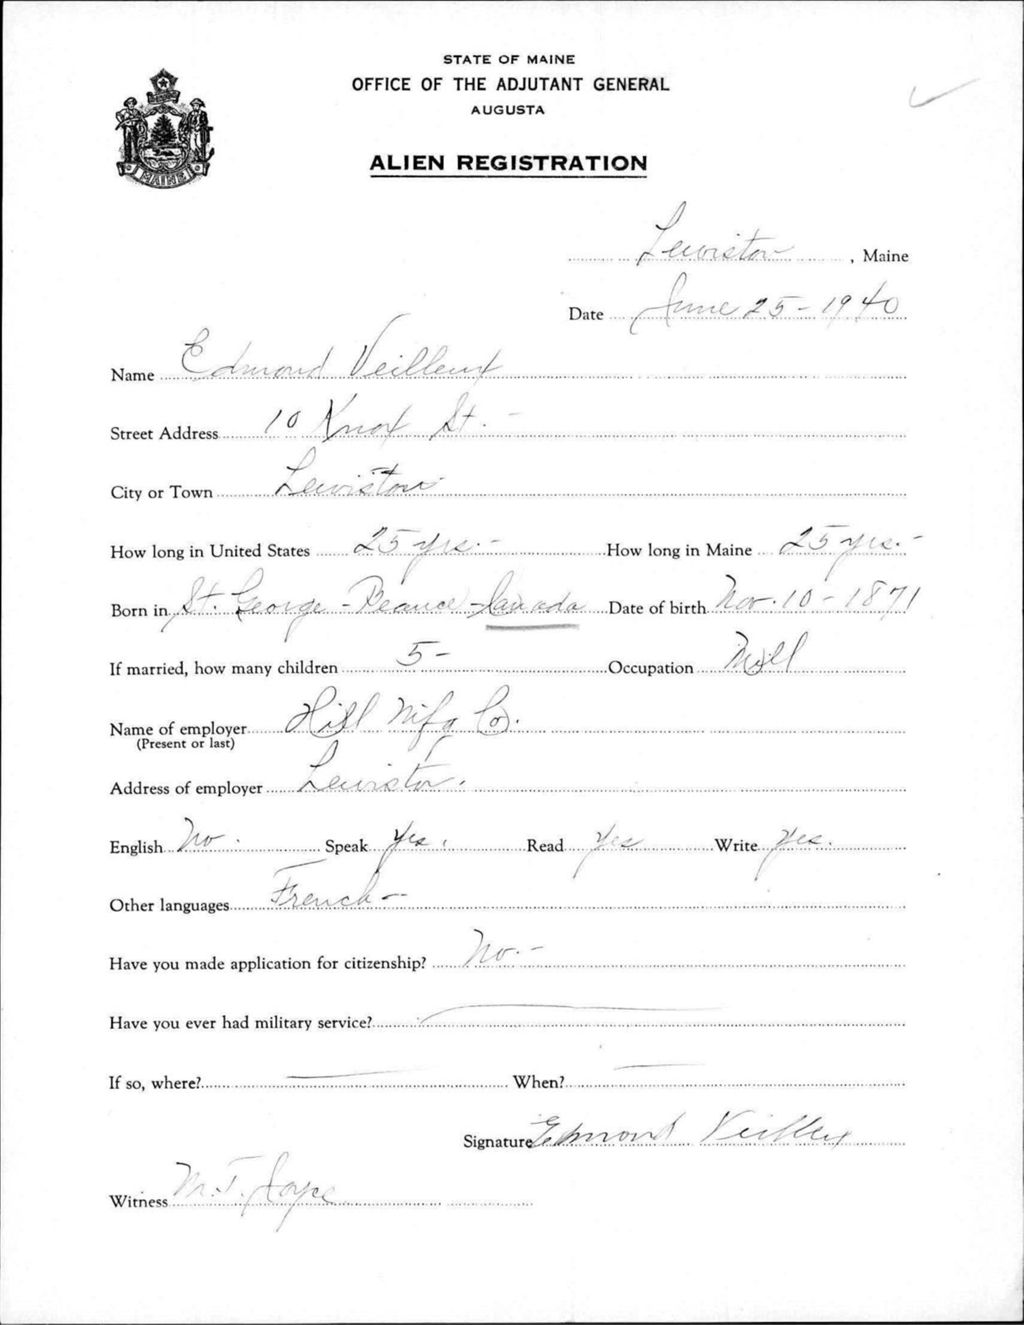 STATE OF MAINE
OFFICE OF THE ADJUTANT GENERAL
AUGUSTA
MAINE
ALIEN REGISTRATION
Lewiston, Maine
Date June 25 - 1940
Name Edmond Veilleux
Street Address 10 Knox St. -
City or Town Lewiston
How long in United States 25 yrs. - How long in Maine 25 yrs. -
Born in St. George - Beauce - Canada Date of birth Nov. 10 - 1871
If married, how many children 5 - Occupation Mill
Name of employer Hill Mfg Co.
(Present or last)
Address of employer Lewiston.
English No. Speak Yes. Read Yes Write Yes.
Other languages French -
Have you made application for citizenship? No. -
Have you ever had military service? —
If so, where? — When? —
Signature Edmond Veilleux
Witness M. T. Joyce